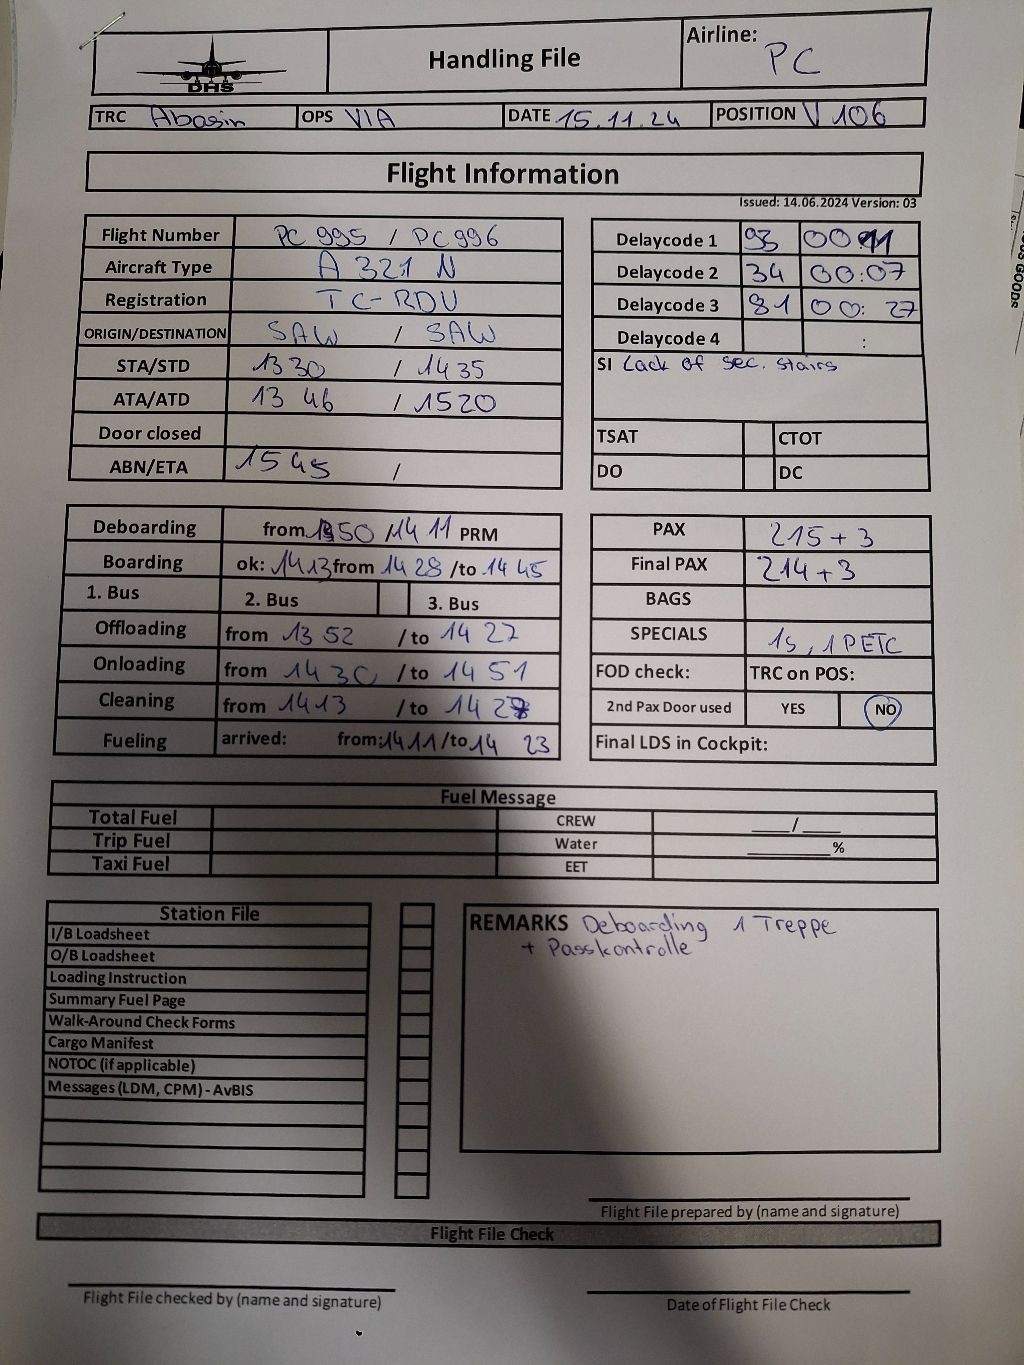 Handling File
Airline: PC
DHS
TRC Abasin OPS VIA DATE 15.11.24 POSITION V 106
Flight Information
Issued: 14.06.2024 Version: 03
Flight Number PC 995 / PC 996
Aircraft Type A 321 N
Registration TC-RDU
ORIGIN/DESTINATION SAW / SAW
STA/STD 1330 / 1435
ATA/ATD 1346 / 1520
Door closed
ABN/ETA 1545 /
Delaycode 1 93 00 11
Delaycode 2 34 00:07
Delaycode 3 81 00: 27
Delaycode 4 :
SI Lack of sec. stairs
TSAT CTOT
DO DC
Deboarding from 1350 /14 11 PRM
Boarding ok: 1413 from 1428 /to 1445
1. Bus 2. Bus 3. Bus
Offloading from 1352 /to 1427
Onloading from 1430 /to 1451
Cleaning from 1413 /to 1428
Fueling arrived: from: 1411 /to 14 23
PAX 215 + 3
Final PAX 214 + 3
BAGS
SPECIALS 1s, 1 PETC
FOD check: TRC on POS:
2nd Pax Door used YES NO
Final LDS in Cockpit:
Fuel Message
Total Fuel CREW ____/____
Trip Fuel Water ________%
Taxi Fuel EET
Station File
I/B Loadsheet
O/B Loadsheet
Loading Instruction
Summary Fuel Page
Walk-Around Check Forms
Cargo Manifest
NOTOC (if applicable)
Messages (LDM, CPM) - AvBIS
REMARKS Deboarding 1 Treppe
+ Passkontrolle
Flight File prepared by (name and signature)
Flight File Check
Flight File checked by (name and signature)
Date of Flight File Check